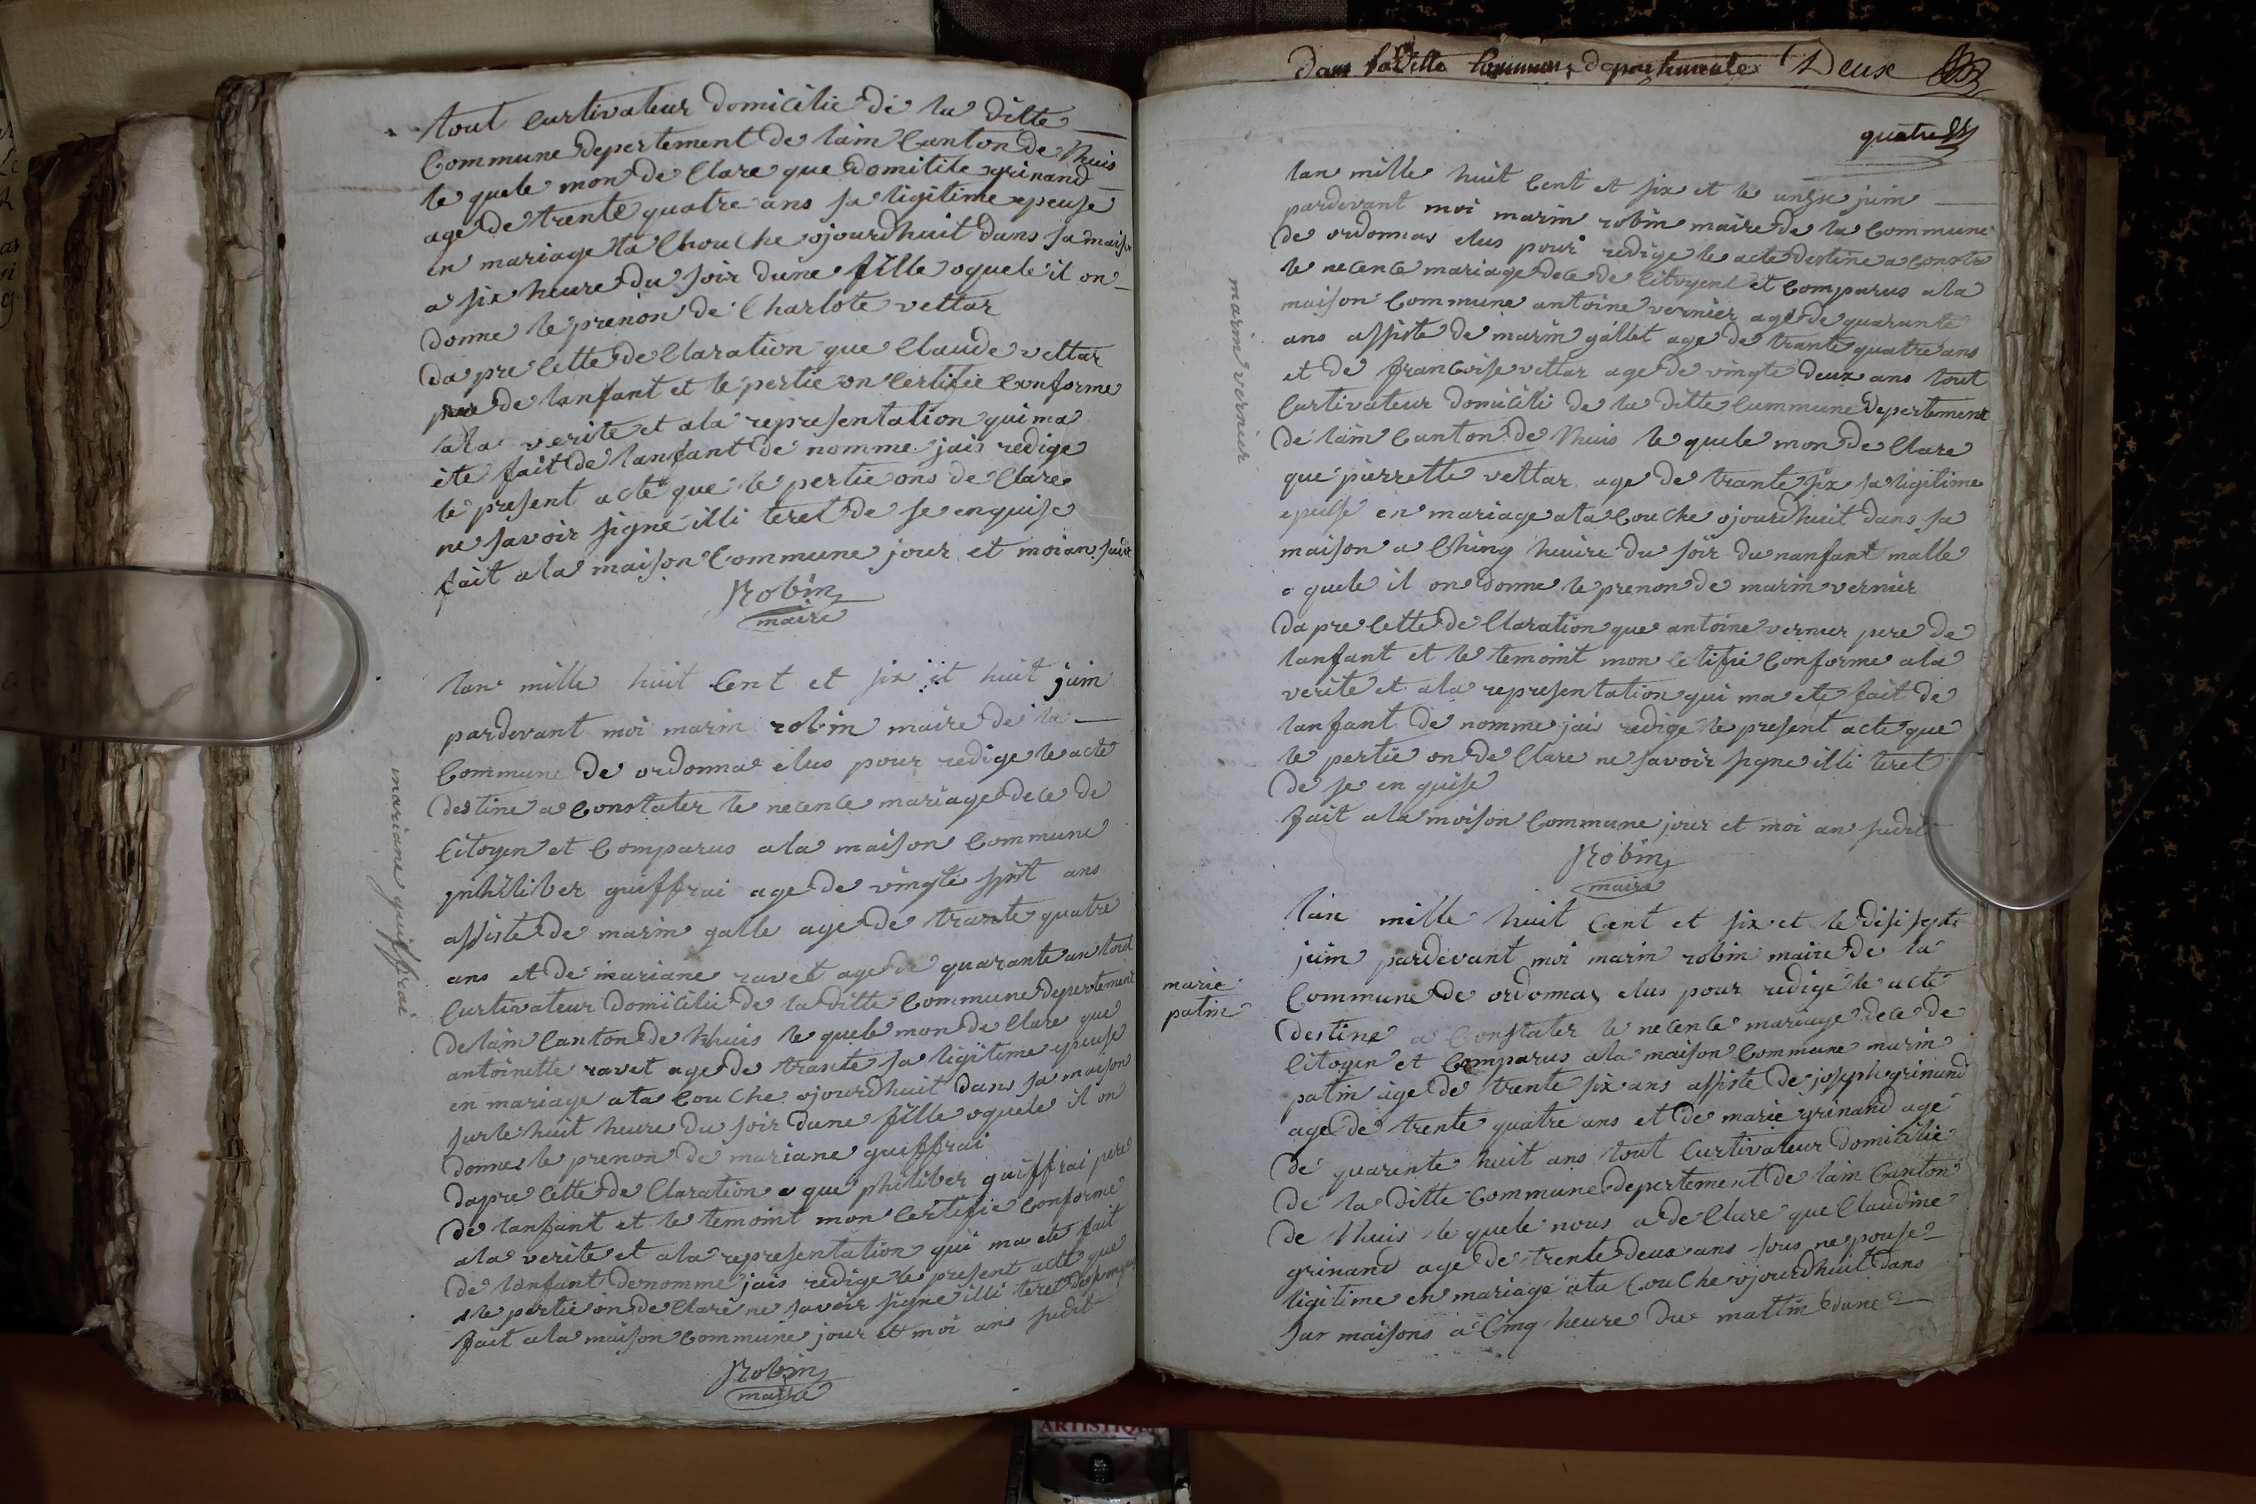 tout Curtivateur domicilie de la ditte
Commune depertement de lain Canton de Lhuis
le quele mon de Clare que domitile grinand
age de trente quatre ans sa ligitime epeuse
en mariage ata Chouche ojourdhuit dans sa maison
a six heure du soir dune fille oquele il on
donne le prenon de Charlote vettar
da pre Cette de Claration que Claude vettar
pere de lanfant et le pertie on Certifie Conforme
ala verite et ala representation qui ma
ete fait de lanfant de nomme jais redige
le present acte que le pertie ons de Clare
ne savoir signe illi teret de se enquise
fait ala maison Commune jour et moi an sudit
Robin
maire
mariane guiffrai
lan mille huit Cent et six et huit juin
pardevant moi marin robin maire de la
Commune de ordonna elus pour redige le acte
destine a Constater le necence mariage dece de
Citoyen et Comparus ala maison Commune
philiber guiffrai age de vingte sept ans
assiste de marin galle age de trante quatre
ans et de mariane ravet age de quarante an tout
Curtivateur domicilie de la ditte Commune depertement
de lain Canton de Lhuis le quele mon de Clare que
antoinette ravet age de trante sa ligitime epeuse
en mariage ata Couche ojourdhuit dans sa maison
sur le huit heure du soir dune fille oquele il on
donne le prenon de mariane guiffrai
dapre Cette de Claration que philiber guiffrai pere
de lanfant et le temoint mon Certifie Conforme
ala verite et ala representation qui ma ete fait
de lanfant denomme jais redige le present acte que
le pertie on de Clare ne savoir signe illi teret de
fait ala maison Commune jour et moi an sudit
Robin
maire
dans la ditte Commune departemente Deux
quatre
marin vernier
lan mille huit Cent et six et le unze juin
pardevant moi marin robin maire de la Commune
de ordonnas elus pour redige le acte destine a
le necence mariage dece de Citoyent et Comparus ala
maison Commune antoine vernier age de quarante
ans assiste de marin gallet age de trante quatre ans
et de francoise vettar age de vingte deux ans tout
Curtivateur domicili de la ditte Cummune depertement
de lain Canton de Lhuis le quele mon de Clare
que pierrette vettar age de trante six sa ligitime
epuise en mariage ata Couche ojourdhuit dans sa
maison a Ching heure du soir du nanfant malle
o quele il on donne le prenon de marin vernier
da pre Cette de Claration que antoine vernier pere de
lanfant et le temoint mon Cetifie Conforme ala
verite et ala representation qui ma ete fait de
lanfant de nomme jais redige le present acte que
le pertie on de Clare ne savoir signe illi teret
de se en quise
fait ala moison Commune jour et moi an sudit
Robin
maire
marie
patin
lan mille huit Cent et six et le disi septe
juin pardevant moi marin robin maire de la
Commune de ordonnas elus pour redige le acte
destine a Constater le necence mariage dece de
Citoyen et Comparus ala maison Commune marin
patin age de trente six ans assiste de joseph grinand
age de trente quatre ans et de marie grinand age
de quarente huit ans tout Curtivateur domicilie
de la ditte Commune depertement de lain Canton
de Lhuis le quele nous a de Clare que Claudine
grinand age de trente deux ans sous ne pouse
ligitime en mariage ata Couche ojourdhuit dans
sar maisons a Cinq heure du mattin dune
ARTISTIQUE